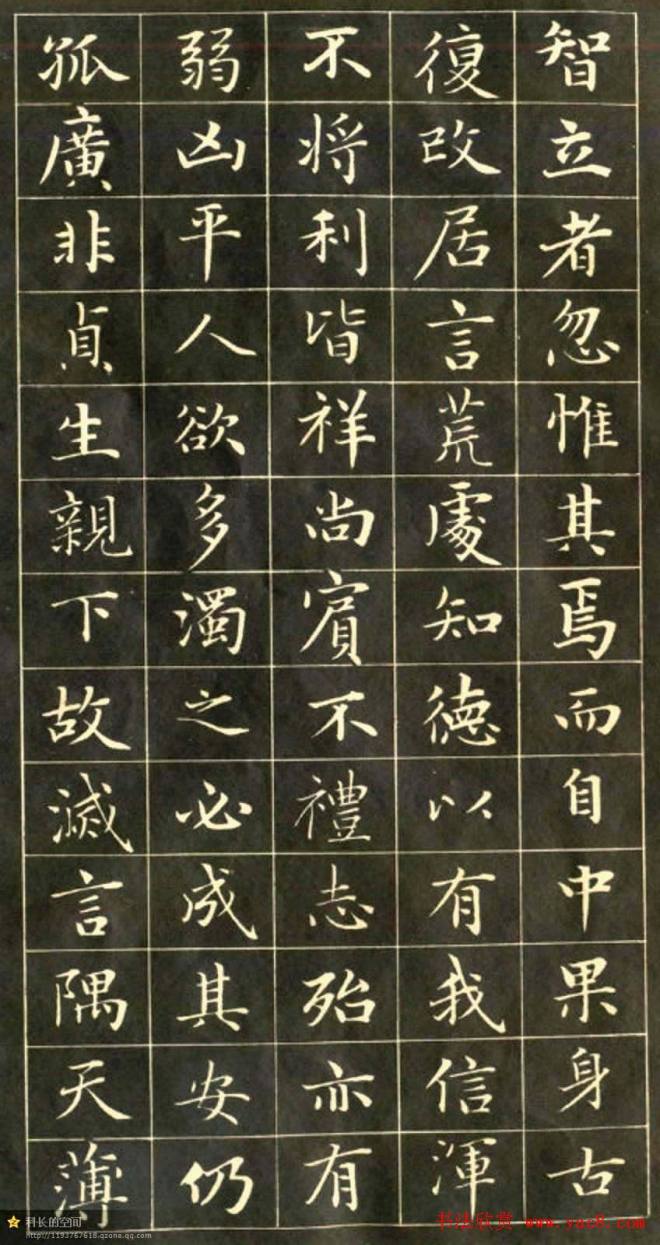 智立者忽惟其焉而自中果身古
復改居言荒處知德以有我信渾
不將利皆祥尚賓不禮志殆亦有
弱凶平人欲多濁之必成其安仍
孤廣非貞生親下故滅言隅天薄
科长的空间
http://1193767618.qzone.qq.com
书法欣赏 www.yac8.com